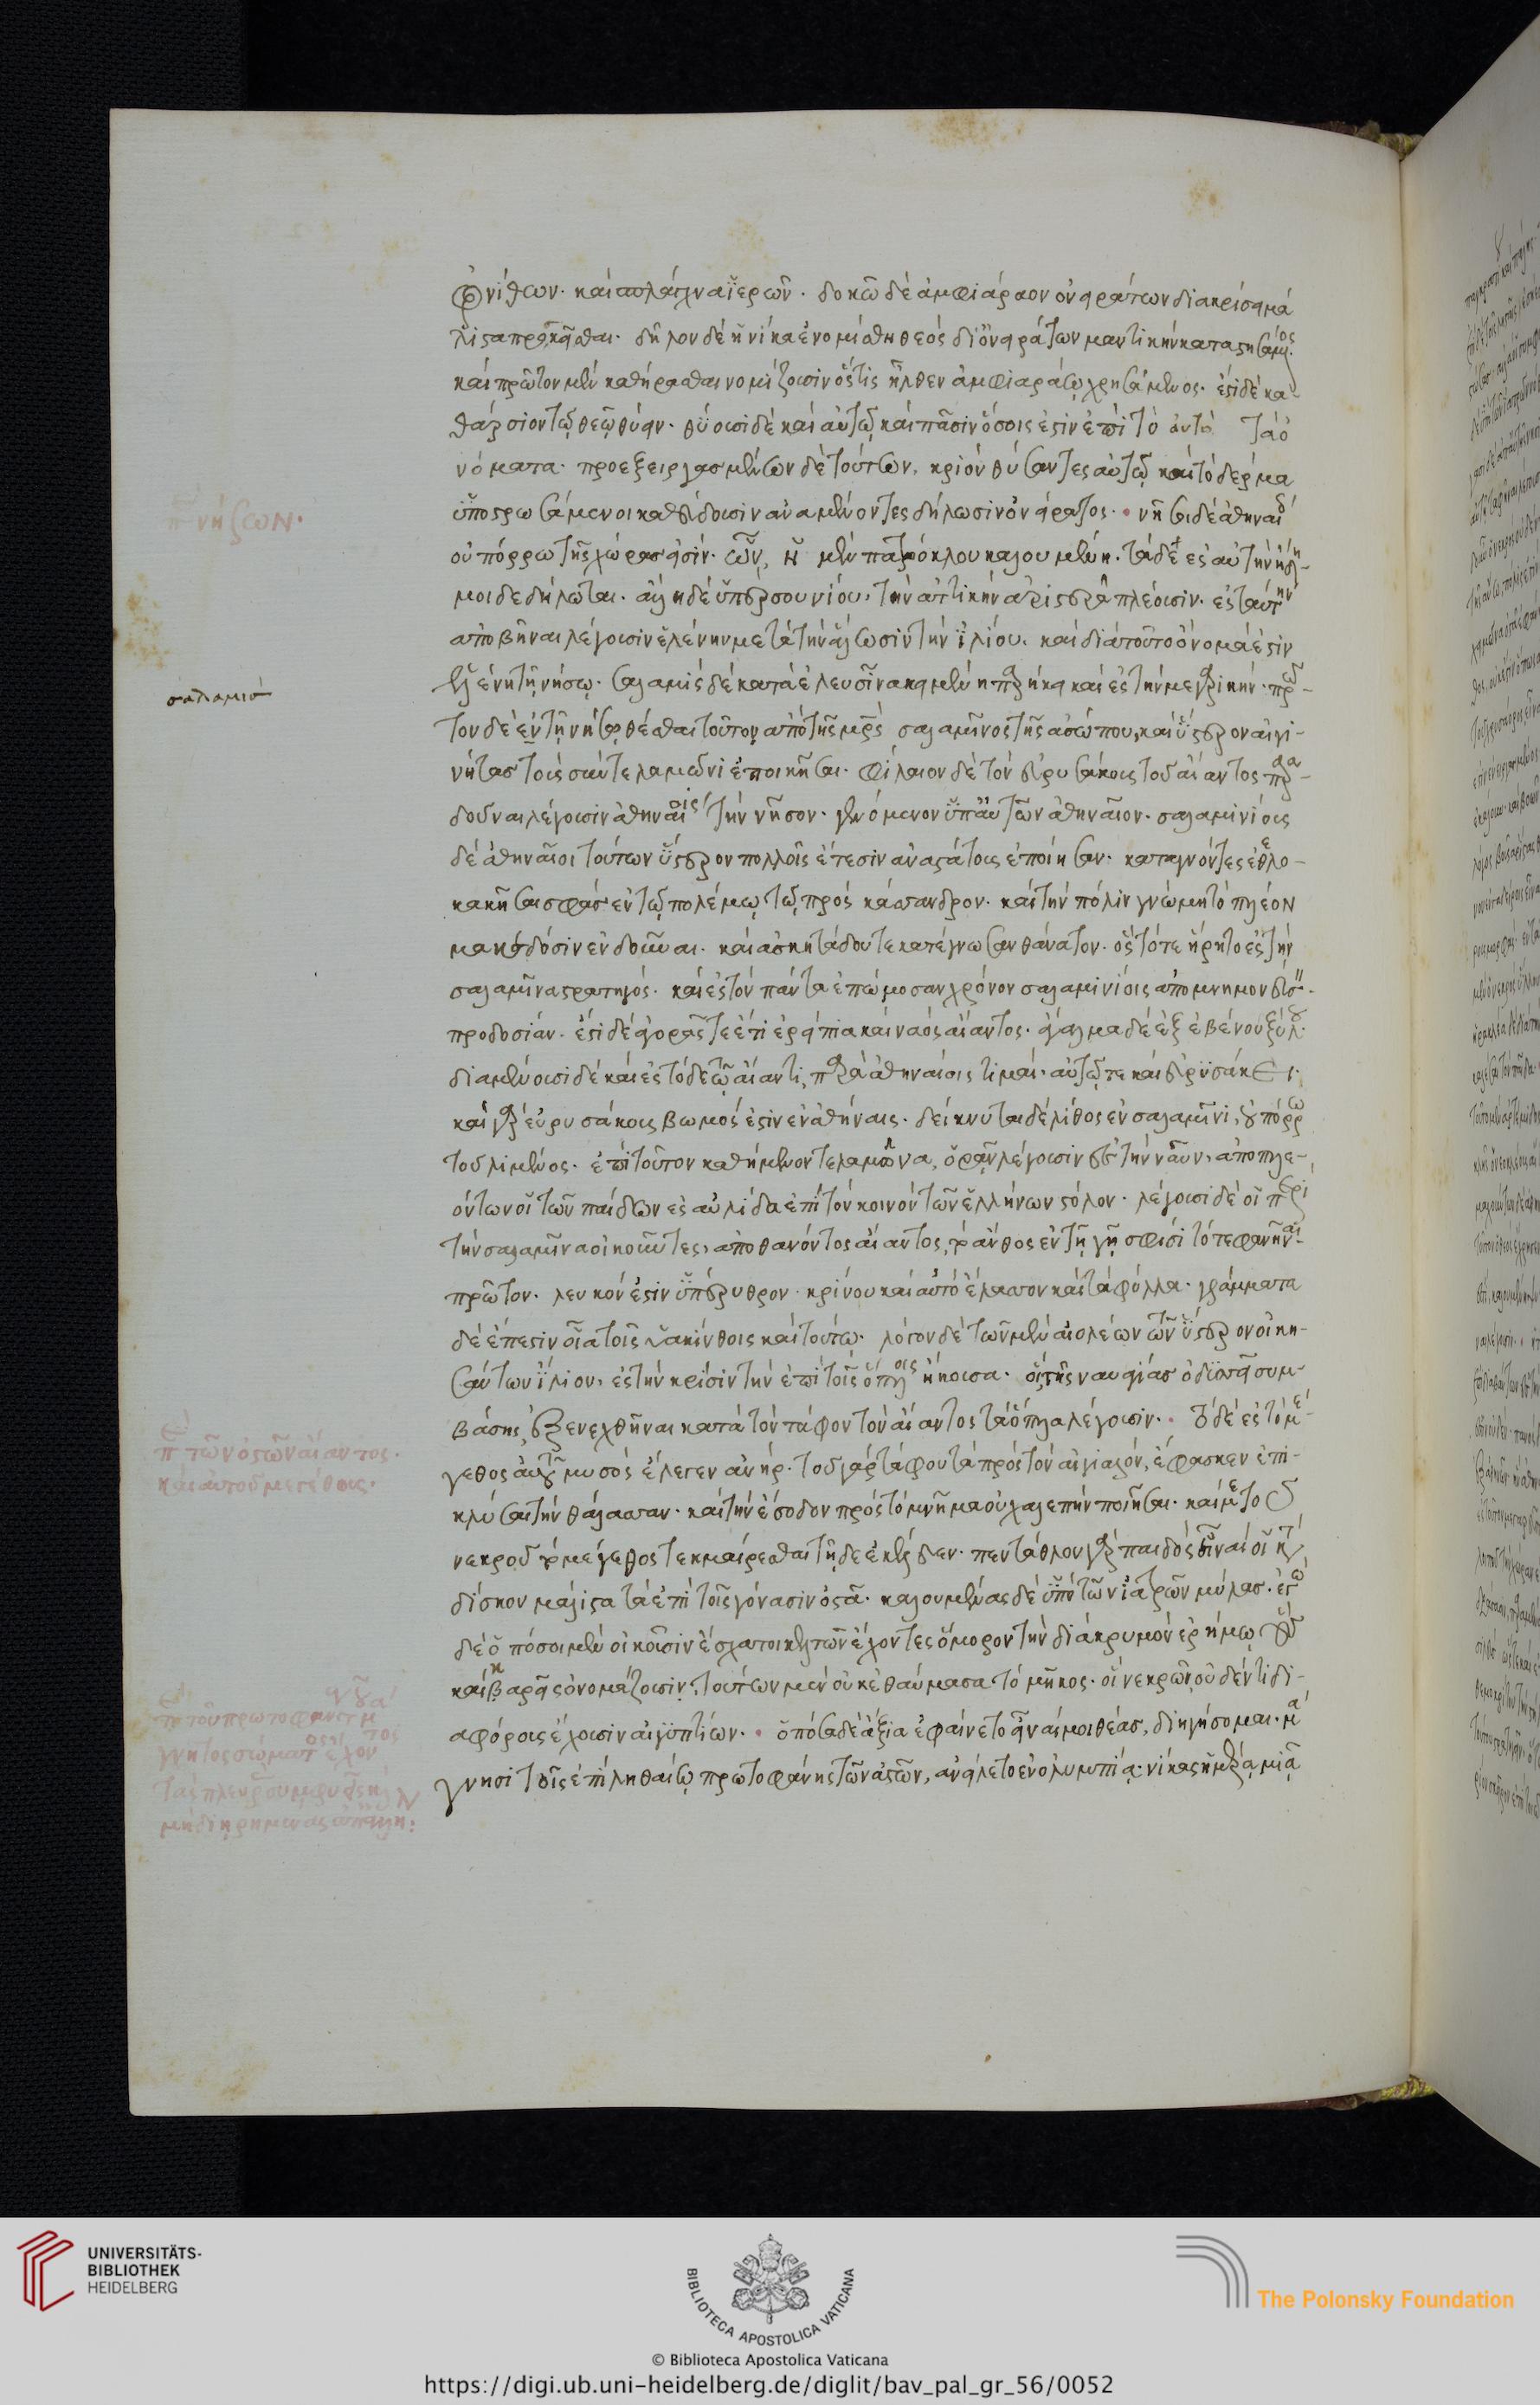 ὀρνίθων. καὶ σπλάγχνα ἱερῶν. δοκῶ δὲ ἀμφιάραον ὀνειράτων διακρίσει μά
λιστα προσκεῖσθαι. δῆλον δὲ ἡνίκα ἐνομίσθη θεός δι' ὀνειράτων μαντικὴν καταστησάμενος
καὶ πρῶτον μὲν καθήρασθαι νομίζουσιν ὅστις ἦλθεν ἀμφιαράῳ χρησάμενος. ἔστι δὲ κα
θάρσιον τῷ θεῷ θύειν. θύουσι δὲ καὶ αὐτῷ καὶ πᾶσιν ὅσοις ἐστὶν ἐπὶ τὸ αὐτὸ τὰ ὀ
νόματα. προεξειργασμένων δὲ τούτων, κριὸν θύσαντες αὐτῷ καὶ τὸ δέρμα
ὑποστρωσάμενοι καθεύδουσιν ἀναμένοντες δήλωσιν ὀνείρατος. νῆσοι δὲ ἀθηναί
οὐ πόρρω τῆς χώρας εἰσίν. ὧν, ἡ μὲν πατρόκλου καλουμένη. τὰ δὲ ἐς αὐτὴν ἤδη
μοι δεδήλωται. ἄλλη δὲ ὑπὲρ σουνίου, τὴν ἀττικὴν ἀριστερᾷ πλέουσιν. ἐς ταύτην
ἀποβῆναι λέγουσιν ἑλένην μετὰ τὴν ἅλωσιν τὴν ἰλίου. καὶ διὰ τοῦτο ὄνομά ἐστιν
ἑλένη τῇ νήσῳ. σαλαμὶς δὲ κατὰ ἐλευσῖνα κειμένη παρήκει καὶ ἐς τὴν μεγαρικήν. πρῶ-
τον δὲ ἐν τῇ νήσῳ θέσθαι τοῦτον ἀπὸ τῆς μητρὸς σαλαμῖνος τῆς ἀσώπου, καὶ ὕστερον αἰγι-
νήτας τοὺς σὺν τελαμῶνι ἐποικῆσαι. φίλαιον δὲ τὸν εὐρυσάκους τοῦ αἴαντος παρα-
δοῦναι λέγουσιν ἀθηναίοις τὴν νῆσον. γενόμενον ὑπ' αὐτῶν ἀθηναῖον. σαλαμινίους
δὲ ἀθηναῖοι τούτων ὕστερον πολλοῖς ἔτεσιν ἀναστάτους ἐποίησαν. καταγνόντες ἐθελο-
κακῆσαι σφᾶς ἐν τῷ πολέμῳ τῷ πρὸς κάσσανδρον. καὶ τὴν πόλιν γνώμῃ τὸ πλέον
μακεδόσιν ἐνδοῦναι. καὶ ἀσκητάδου τε κατέγνωσαν θάνατον. ὃς τότε ᾕρητο ἐς τὴν
σαλαμῖνα στρατηγός. καὶ ἐς τὸν πάντα ἐπώμοσαν χρόνον σαλαμινίοις ἀπομνημονεύσειν
προδοσίαν. ἔστι δὲ ἀγορᾶς τε ἔτι ἐρείπια καὶ ναὸς αἴαντος. ἄγαλμα δὲ ἐξ ἐβένου ξύλου.
διαμένουσι δὲ καὶ ἐς τόδε τῷ αἴαντι, παρὰ ἀθηναίοις τιμαί. αὐτῷ τε καὶ εὐρυσάκει.
καὶ γὰρ εὐρυσάκους βωμός ἐστιν ἐν ἀθήναις. δείκνυται δὲ λίθος ἐν σαλαμῖνι, οὐ πόρρω
τοῦ λιμένος. ἐπὶ τοῦτον καθήμενον τελαμῶνα, ὁρᾶν λέγουσιν ἐς τὴν ναῦν, ἀποπλε-
όντων οἱ τῶν παίδων ἐς αὐλίδα ἐπὶ τὸν κοινὸν τῶν ἑλλήνων στόλον. λέγουσι δὲ οἱ περὶ
τὴν σαλαμῖνα οἰκοῦντες, ἀποθανόντος αἴαντος, τὸ ἄνθος ἐν τῇ γῇ σφίσι τότε φανῆναι.
πρῶτον. λευκόν ἐστιν ὑπέρυθρον κρίνου καὶ αὐτὸ ἔλασσον καὶ τὰ φύλλα. γράμματα
δὲ ἔπεστιν οἷα τοῖς ὑακίνθοις καὶ τούτῳ. λόγον δὲ τῶν μὲν αἰολέων τῶν ὕστερον οἰκη-
σάντων ἴλιον, ἐς τὴν κρίσιν τὴν ἐπὶ τοῖς ὅπλοις ἤκουσα. οἳ τῆς ναυαγίας ὀδυσσεῖ συμ-
βάσης, ἐξενεχθῆναι κατὰ τὸν τάφον τὸν αἴαντος τὰ ὅπλα λέγουσιν. τὸ δὲ ἐς τὸ μέ-
γεθος αὐτοῦ μυσὸς ἔλεγεν ἀνήρ. τοῦ γὰρ τάφου τὰ πρὸς τὸν αἰγιαλόν, ἔφασκεν ἐπι-
κλύσαι τὴν θάλασσαν. καὶ τὴν ἔσοδον πρὸς τὸ μνῆμα οὐ χαλεπὴν ποιῆσαι. καί με τοῦ
νεκροῦ τὸ μέγεθος τεκμαίρεσθαι τῇδε ἐκέλευεν. πεντάθλου γὰρ παιδὸς εἶναί οἱ κατὰ
δίσκον μάλιστα τὰ ἐπὶ τοῖς γόνασιν ὀστᾶ. καλουμένας δὲ ὑπὸ τῶν ἰατρῶν μύλας. ἐγὼ
δὲ ὁπόσοι μὲν οἰκοῦσιν ἔσχατοι κελτῶν ἔχοντες ὅμορον τὴν διὰ κρυμὸν ἐρήμῳ οὓς
καὶ βαρεῖς ὀνομάζουσιν, τούτων μὲν οὐκ ἐθαύμασα τὸ μῆκος. οἳ νεκρῶν οὐδέν τι δι-
αφόρους ἔχουσιν αἰγυπτίων. ὁπόσα δὲ ἄξια ἐφαίνετο εἶναί μοι θέας, διηγήσομαι. μά
γνησι τοῖς ἐπὶ ληθαίῳ πρωτοφάνης τῶν ἀστῶν, ἀνείλετο ἐν ὀλυμπίᾳ νίκας ἡμέρᾳ μιᾷ
περὶ νήσων.
σαλαμισ
περὶ τῶν ὀστῶν αἴαντος.
καὶ αὐτοῦ μεγέθους.
UNIVERSITÄTS-
BIBLIOTHEK
HEIDELBERG
BIBLIOTECA APOSTOLICA VATICANA
© Biblioteca Apostolica Vaticana
The Polonsky Foundation
https://digi.ub.uni-heidelberg.de/diglit/bav_pal_gr_56/0052